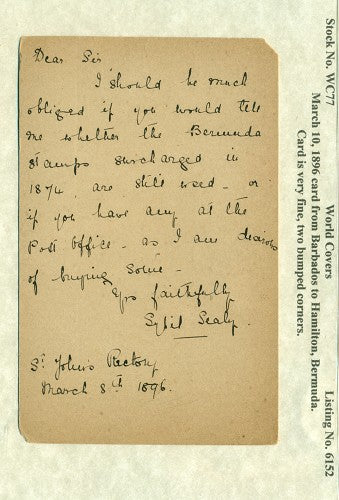 Dear Sir
I should be much
obliged if you would tell
me whether the Bermuda
Stamps surcharged in
1874 are still used - or
if you have any at the
Post Office - as I am desirous
of buying some -
Yrs faithfully
Sybil Sealy.
St John's Rectory
March 8th 1896.
Stock No. WC77 World Covers Listing No. 6152
March 10, 1896 card from Barbados to Hamilton, Bermuda.
Card is very fine, two bumped corners.